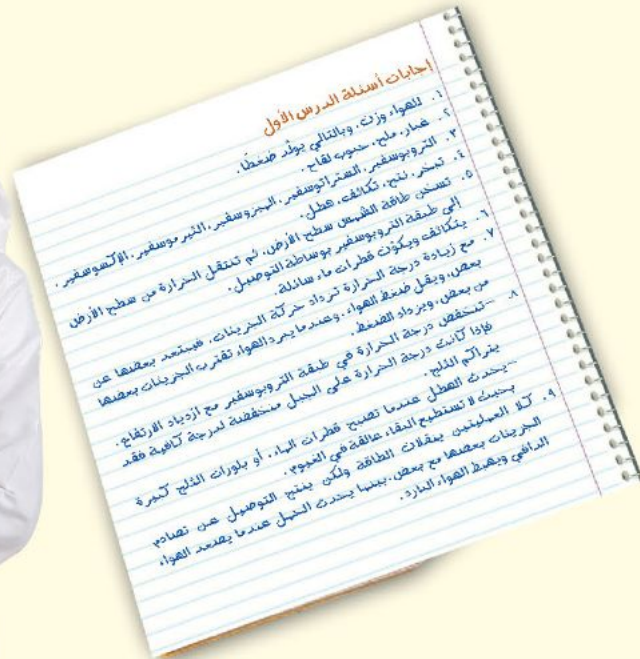 إجابات أسئلة الدرس الأول
١. للهواء وزن، وبالتالي يولّد ضغطًا.
٢. غبار، ملح، حبوب لقاح.
٣. التروبوسفير، الستراتوسفير، الميزوسفير، الثيرموسفير، الإكسوسفير.
٤. تبخر، نتح، تكاثف، هطل.
٥. تسخن طاقة الشمس سطح الأرض، ثم تنتقل الحرارة من سطح الأرض
إلى طبقة التروبوسفير بوساطة التوصيل.
٦. يتكاثف ويكوّن قطرات ماء سائلة.
٧. مع زيادة درجة الحرارة تزداد حركة الجزيئات، فيبتعد بعضها عن
بعض، ويقل ضغط الهواء، وعندما يبرد الهواء تقترب الجزيئات بعضها
من بعض، ويزداد الضغط.
٨. -تنخفض درجة الحرارة في طبقة التروبوسفير مع ازدياد الارتفاع.
فإذا كانت درجة الحرارة على الجبل منخفضة لدرجة كافية فقد
يتراكم الثلج.
-يحدث الهطل عندما تصبح قطرات الماء، أو بلورات الثلج كبيرة
بحيث لا تستطيع البقاء عالقة في الغيوم.
٩. كلا العمليتين ينقلان الطاقة ولكن ينتج التوصيل عن تصادم
الجزيئات بعضها مع بعض، بينما يحدث الحمل عندما يصعد الهواء
الدافئ ويهبط الهواء البارد.